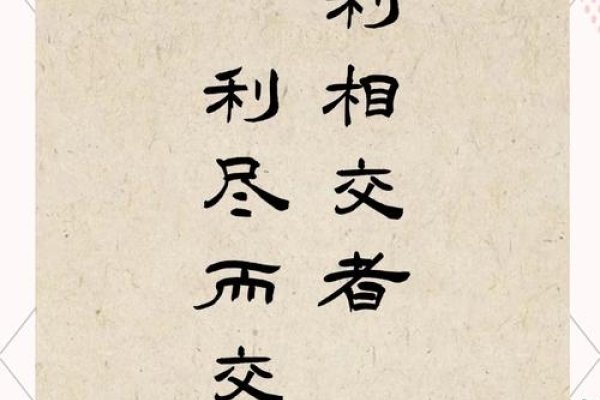 利相交者
利尽而交